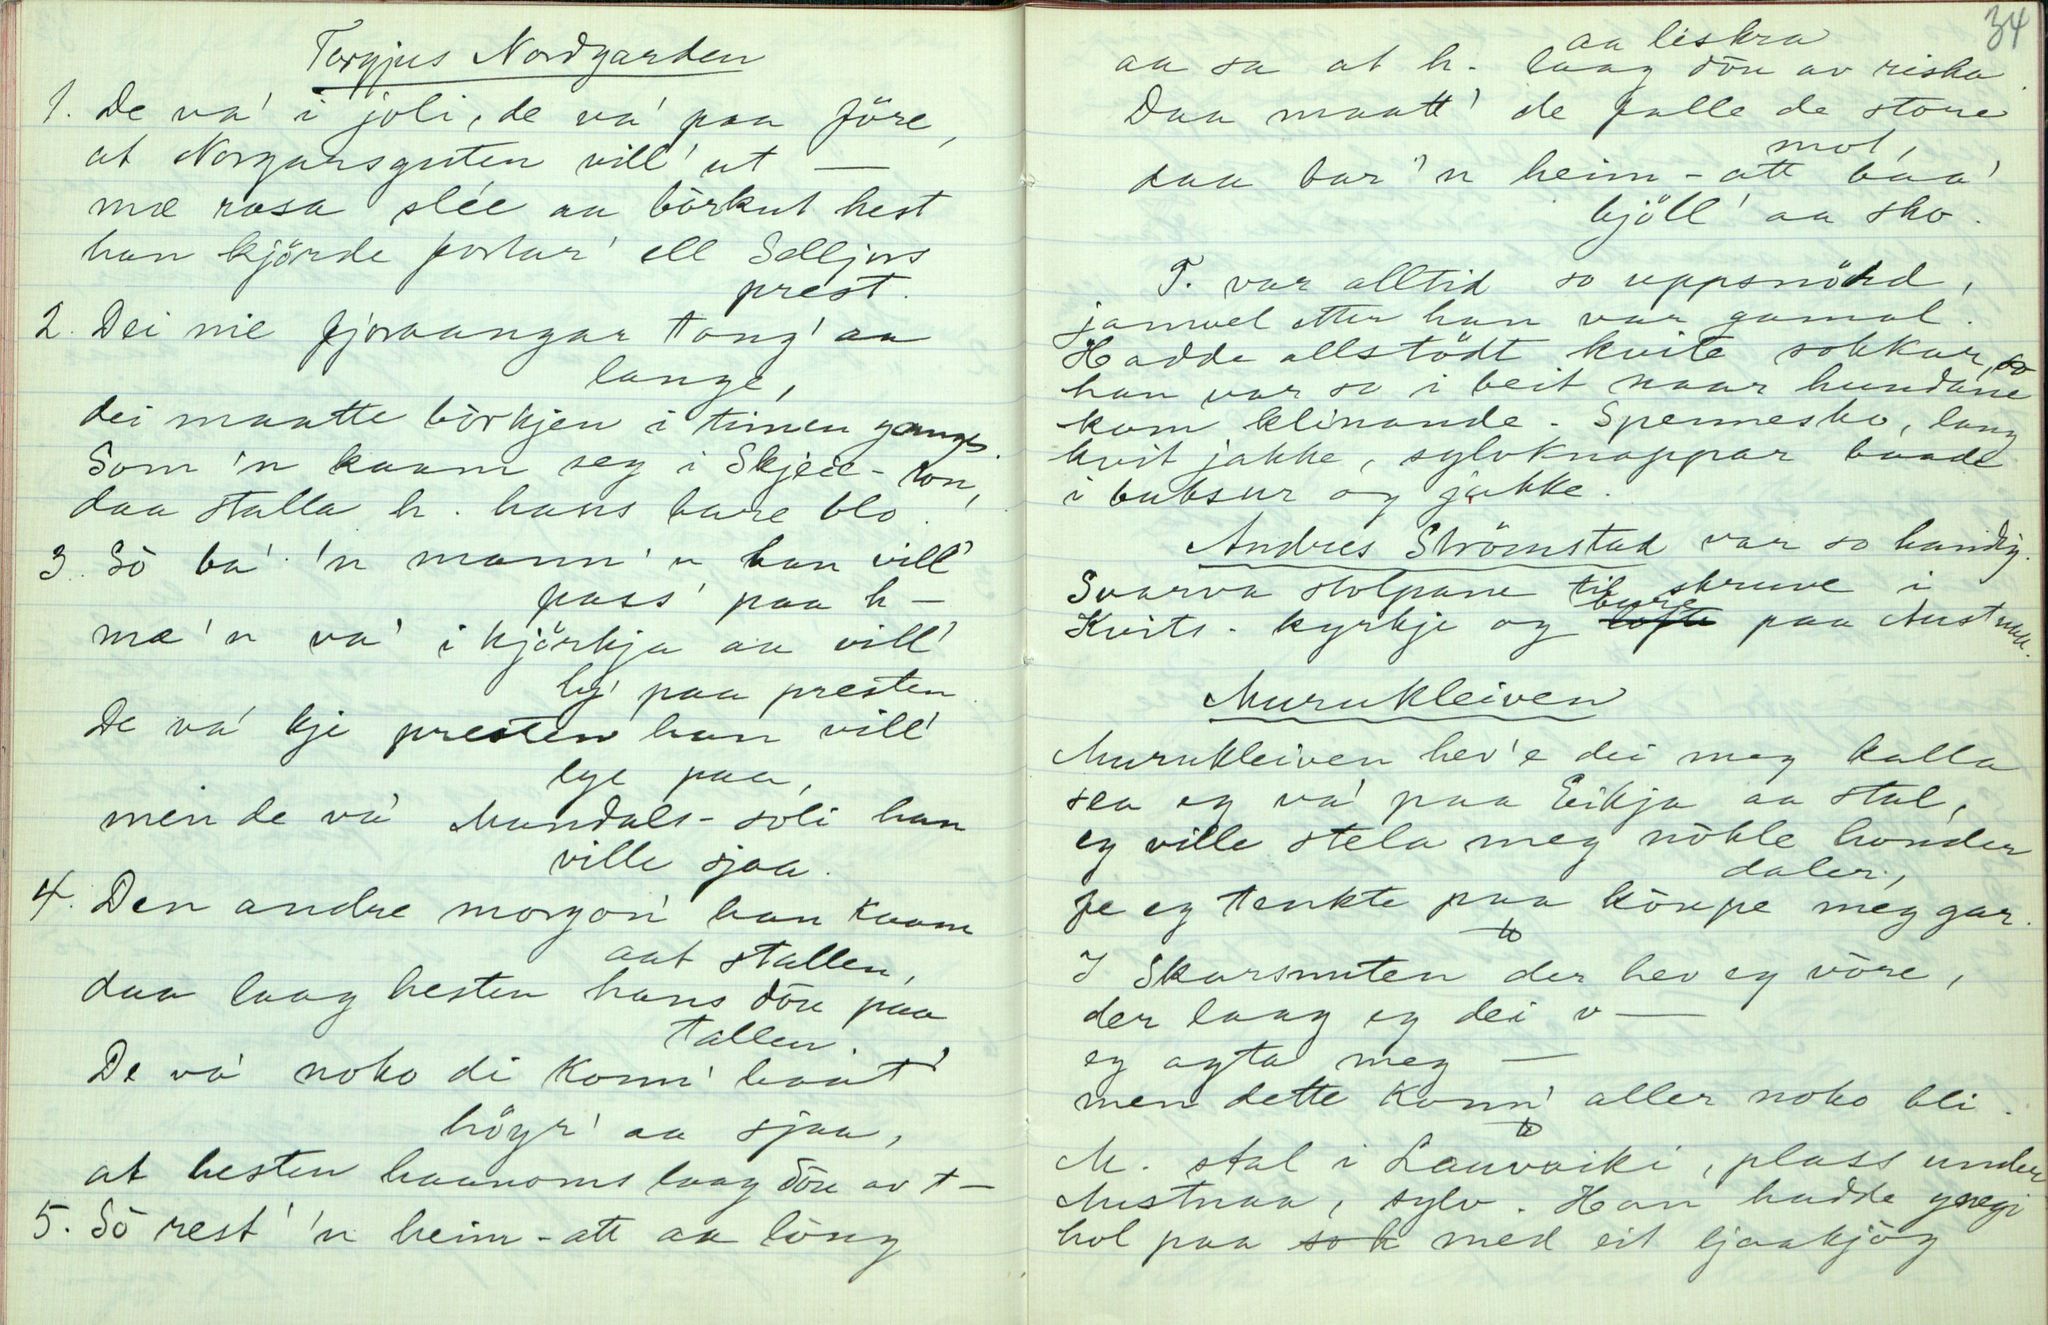 Torgjus Nordgarden
1. De va' i joli, de va' paa före,
at Norgarsguten vill' ut —
mæ rosa slée aa börkut hest
han kjörde fortar' ell Selljors
prest.
2. Dei nie fjoraangar tong' aa
lange,
dei maatte börkjen i timen gange.
Som 'n kaam seg i Skjeie-ron,
daa stalla h. hans bare blo.
3. Sò ba' 'n mann' n han vill'
pass' paa h —
mæ 'n va' i kjörkja aa vill'
ly' paa presten
De va' kje presten han vill'
lye paa,
men de va' Mandals-soli han
ville sjaa.
4. Den andre morgon' han kaam
aat stallen,
daa laag hesten hans döu paa
tallen.
De va' noko di konn' baat'
höyr' aa sjaa,
at hesten haanoms laag döu av t —
5. Sò rest' 'n heim-att aa löng
34
aa liskra
aa sa at h. laag döu av riska.
Daa maatt' de falle de store
mot,
daa bar 'n heim-att baa'
bjöll' aa sko.
T. var alltid so uppsnördd,
jamvel etter han var gamal.
Hadde allstödt kvite sokkar, so
han var so i beit naar hundane
kom klinande. Spennesko, lang
kvit jakke, sylvknappar baade
i buksur og jakke.
Andres Strömstad var so handig.
Svarva stolpane til skruve i
bure
Kvits. kyrkje og lofte paa Austnaa.
Murukleiven
Murukleiven hev'e dei meg kalla
sea eg va' paa Eikja aa stal,
eg ville stela meg nökle hunder
daler,
fe eg tenkte paa köupe meg gar.
I Skarsnuten der hev eg vöre,
der laag eg dei v —
eg agta meg —
men dette konn' aller noko bli.
M. stal i Lauvviki, plass under
Austnaa, sylv. Han hadde gregi
hol paa so h med eit ljaakjög